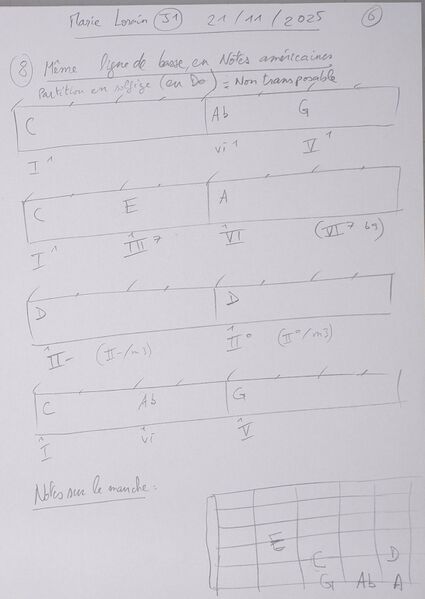 Marie Lorain J1 21/11/2025 6
8 Même ligne de basse, en Notes américaines
Partition en solfège (en Do) = Non transposable
C Ab G
I 1 vi 1 V 1
C E A
I 1 III 7 VI (VI 7 b9)
D D
II- (II-/m3) II° (II°/m3)
C Ab G
I vi V
Notes sur le manche :
E
C D
G Ab A